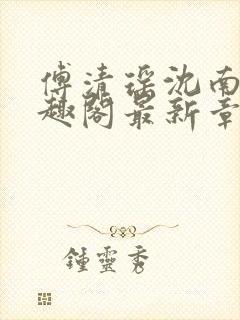 傅清瑶沈南
趣阁最新章
鍾靈秀